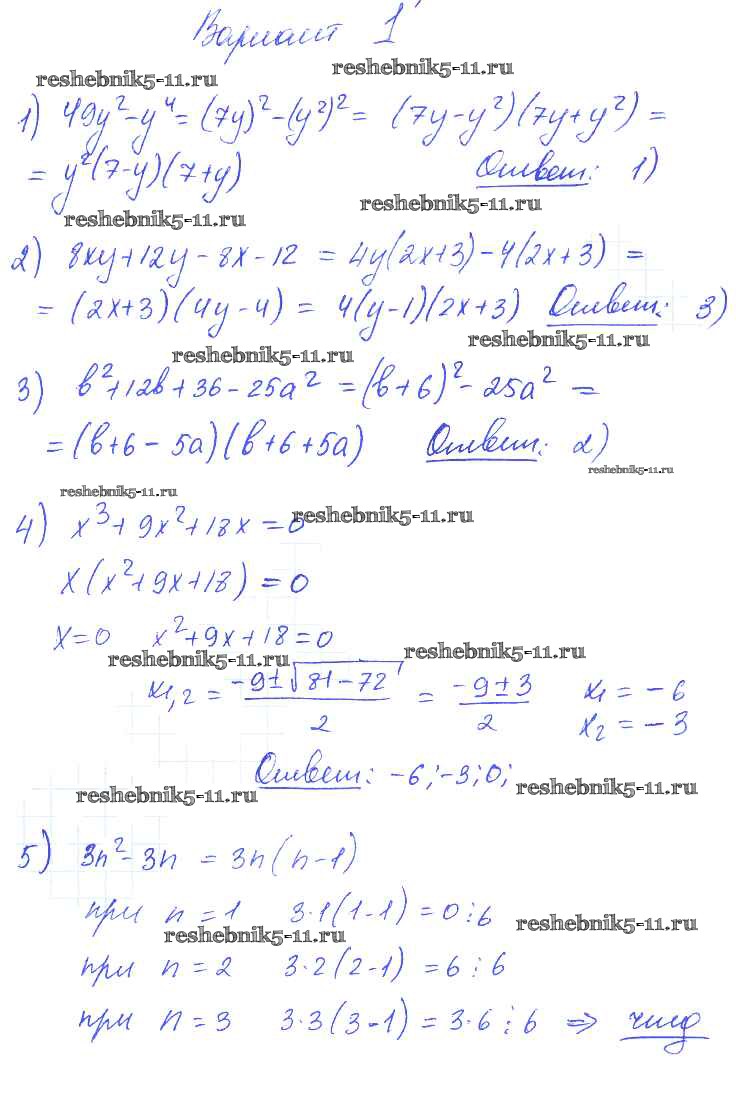 Вариант 1
reshebnik5-11.ru reshebnik5-11.ru
1) 49y² - y⁴ = (7y)² - (y²)² = (7y - y²)(7y + y²) =
= y²(7 - y)(7 + y) Ответ: 1)
reshebnik5-11.ru reshebnik5-11.ru
2) 8xy + 12y - 8x - 12 = 4y(2x + 3) - 4(2x + 3) =
= (2x + 3)(4y - 4) = 4(y - 1)(2x + 3) Ответ: 3)
reshebnik5-11.ru reshebnik5-11.ru
3) b² + 12b + 36 - 25a² = (b + 6)² - 25a² =
= (b + 6 - 5a)(b + 6 + 5a) Ответ: 2)
reshebnik5-11.ru
reshebnik5-11.ru
4) x³ + 9x² + 18x = 0 reshebnik5-11.ru
x(x² + 9x + 18) = 0
x = 0 x² + 9x + 18 = 0
reshebnik5-11.ru reshebnik5-11.ru
x₁,₂ = (-9 ± √(81 - 72))/2 = (-9 ± 3)/2 x₁ = -6
x₂ = -3
Ответ: -6; -3; 0;
reshebnik5-11.ru reshebnik5-11.ru
5) 3n² - 3n = 3n(n - 1)
при n = 1 3·1(1 - 1) = 0 ⋮ 6
reshebnik5-11.ru reshebnik5-11.ru
при n = 2 3·2(2 - 1) = 6 ⋮ 6
при n = 3 3·3(3 - 1) = 3·6 ⋮ 6 ⇒ чмд